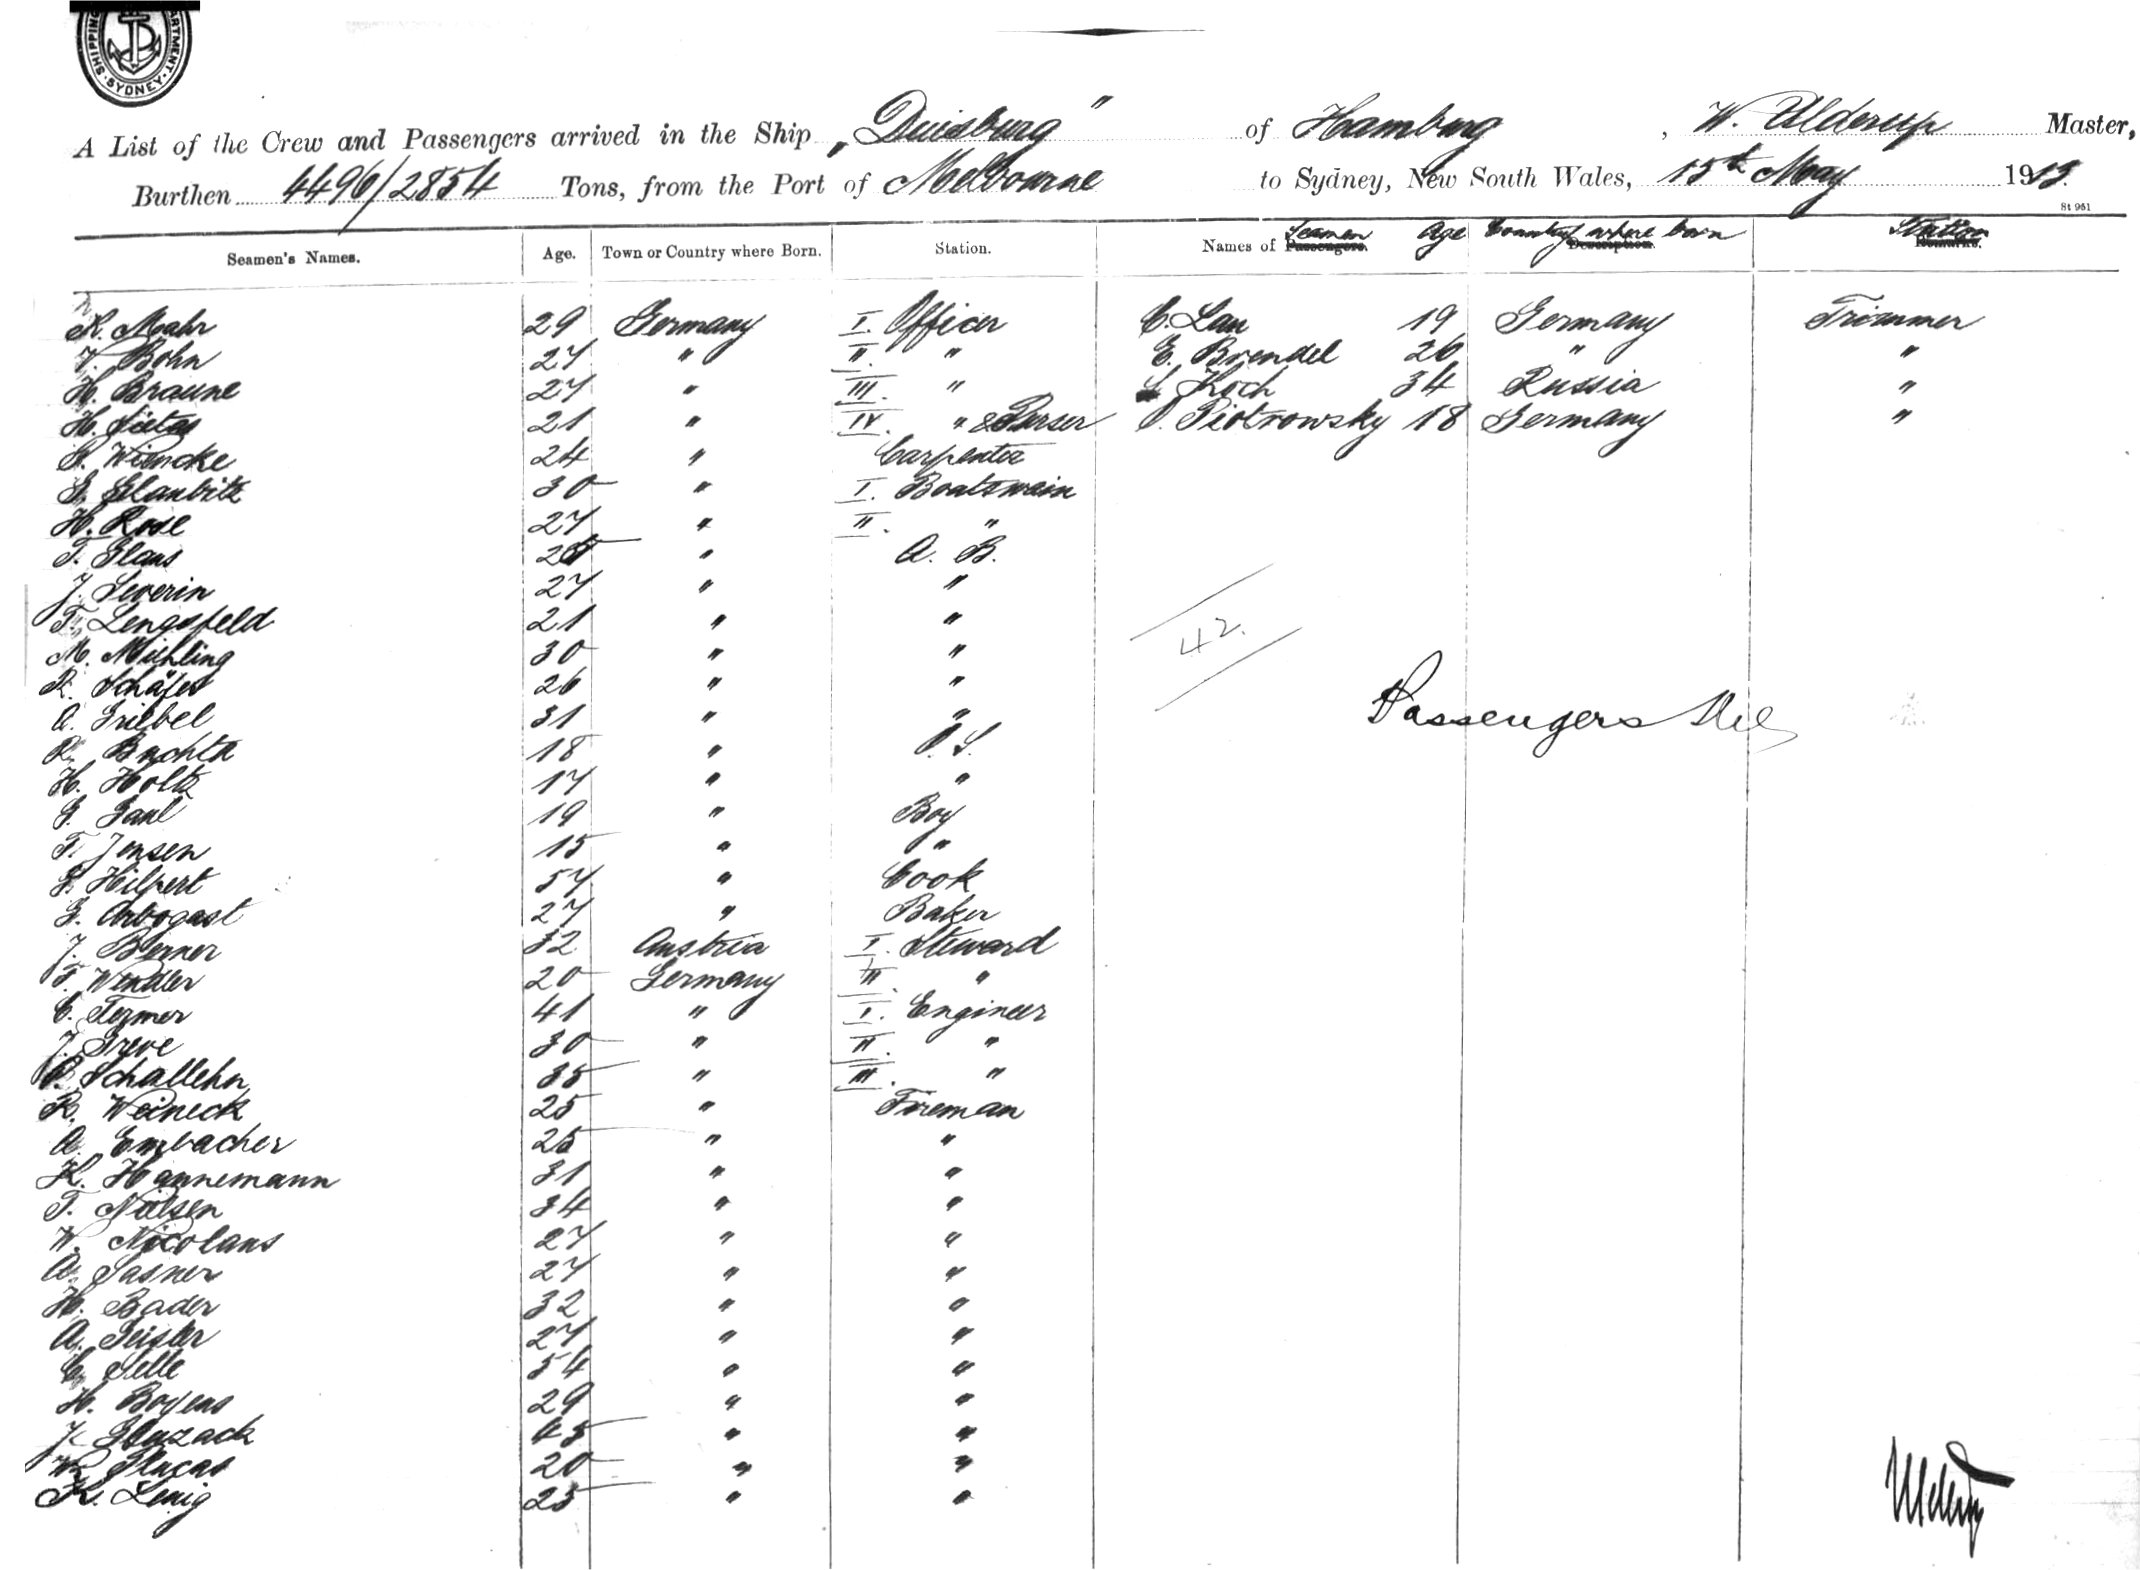 SHIPPING DEPARTMENT. SYDNEY.
A List of the Crew and Passengers arrived in the Ship „Duisburg" of Hamburg, W. Ulderup Master,
Burthen 4496/2854 Tons, from the Port of Melbourne to Sydney, New South Wales, 15th May 1913.
St 961
Seamen's Names. Age. Town or Country where Born. Station. Names of Passengers. Seamen Age Description. Country where born Remarks. Station
K. Mahr 29 Germany I. Officer C. Lau 19 Germany Trimmer
J. Bohn 27 " II. " E. Brendel 26 " "
H. Braune 27 " III. " Koch 34 Russia "
H. Sietas 21 " IV. " & Purser O. Piotrowsky 18 Germany "
G. Wiencke 24 " Carpenter
G. Glaubitz 30 " I. Boatswain
H. Rose 27 " II. "
F. Glaus " A. B.
J. Severin 27 " "
F. Lengsfeld 21 " "
M. Michling 30 " "
R. Schäfer 26 " "
A. Griebel 31 " "
R. Buchta 18 " O. S.
H. Holtz 17 " "
G. Gaul 19 " Boy
F. Jensen 15 " "
G. Hilpert 57 " Cook
G. Arbogast 27 " Baker
J. Berner 32 Austria I. Steward
F. Wendler 20 Germany II. "
C. Termer 41 " I. Engineer
J. Greve 30 " II. "
Schallehn 35 " III. "
R. Weineck 25 " Fireman
A. Embacher 25 " "
K. Hannemann 31 " "
F. Nielsen 34 " "
W. Nicolaus 27 " "
A. Sasner 27 " "
H. Bader 32 " "
A. Geisler 27 " "
C. Selle 54 " "
H. Boyens 29 " "
J. Gluzack 43 " "
W. 20 " "
K. Lenig 23 " "
42.
Passengers Nil